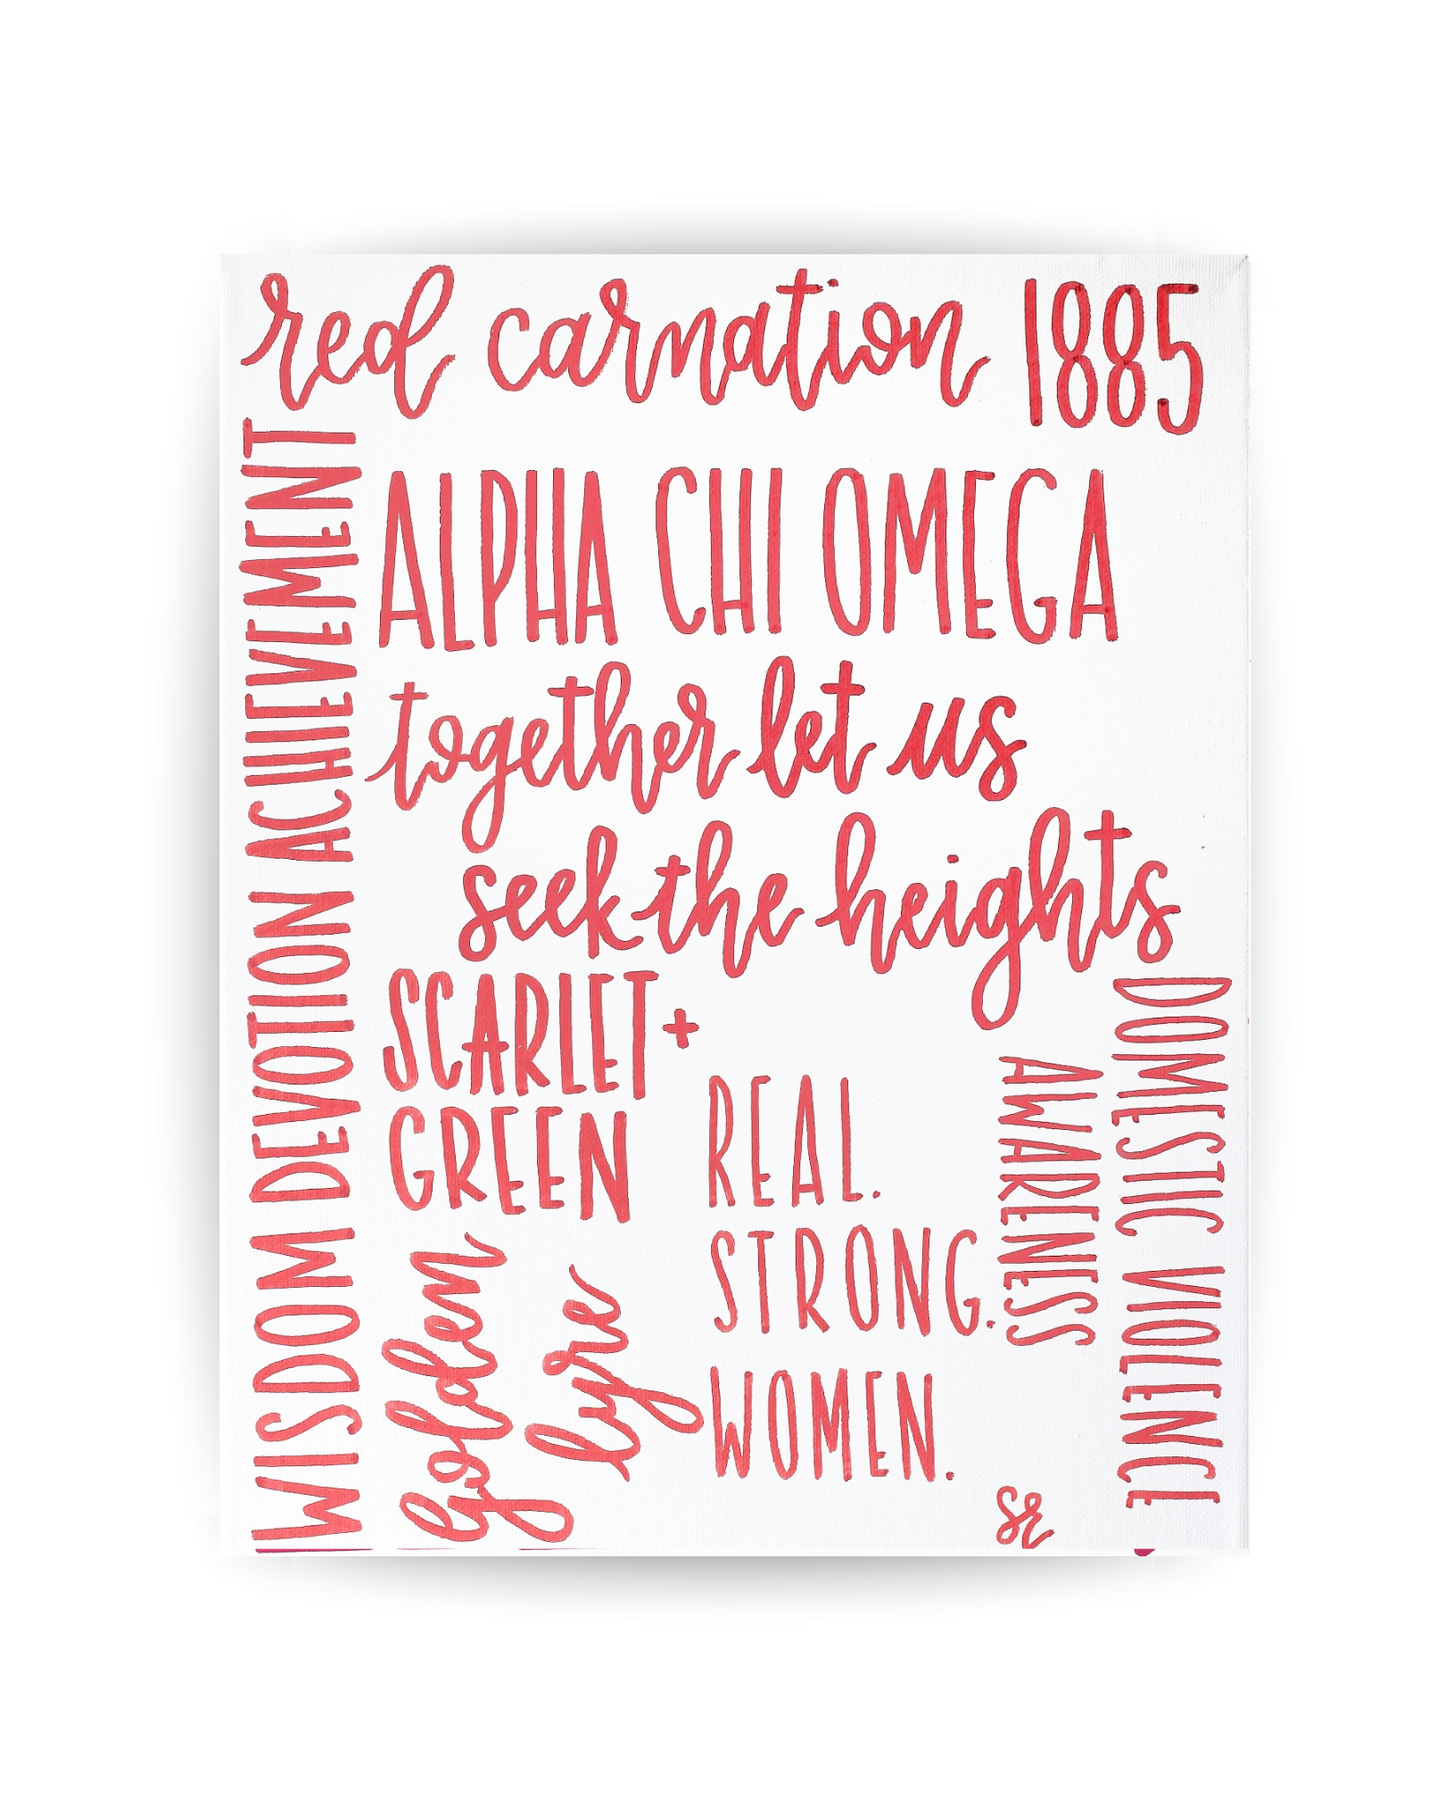 red carnation 1885
WISDOM DEVOTION ACHIEVEMENT
ALPHA CHI OMEGA
together let us
seek the heights
SCARLET +
GREEN
golden
lyre
REAL.
STRONG.
WOMEN.
DOMESTIC VIOLENCE
AWARENESS
SR